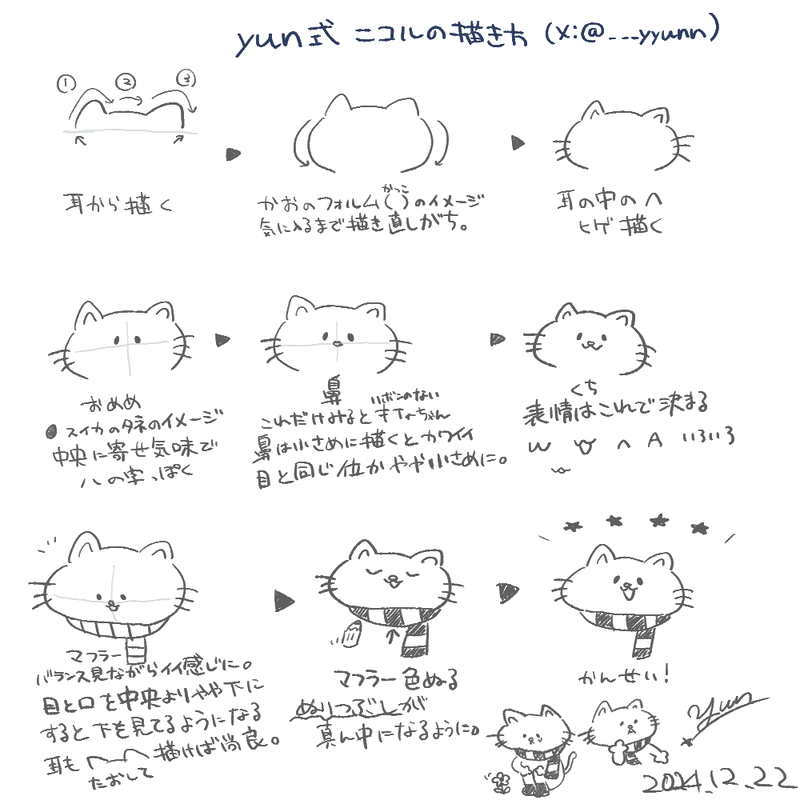 yun式 ニコルの描き方 (X:@___yyunn)
① ② ③
耳から描く
かおのフォルム( )のイメージ
かっこ
気に入るまで描き直しがち。
耳の中のヘ
ヒゲ描く
おめめ
スイカのタネのイメージ
中央に寄せ気味で
ハの字っぽく
鼻
リボンのない
これだけみるとキティちゃん
鼻は小さめに描くとカワイイ
目と同じ位かやや小さめに。
くち
表情はこれで決まる
w ヘ A いろいろ
マフラー
バランス見ながらイイ感じに。
目と口を中央よりやや下に
すると下を見てるようになる
耳も 描けば尚良。
たおして
マフラー色ぬる
ぬりつぶしが
真ん中になるように。
かんせい!
yun
2024.12.22